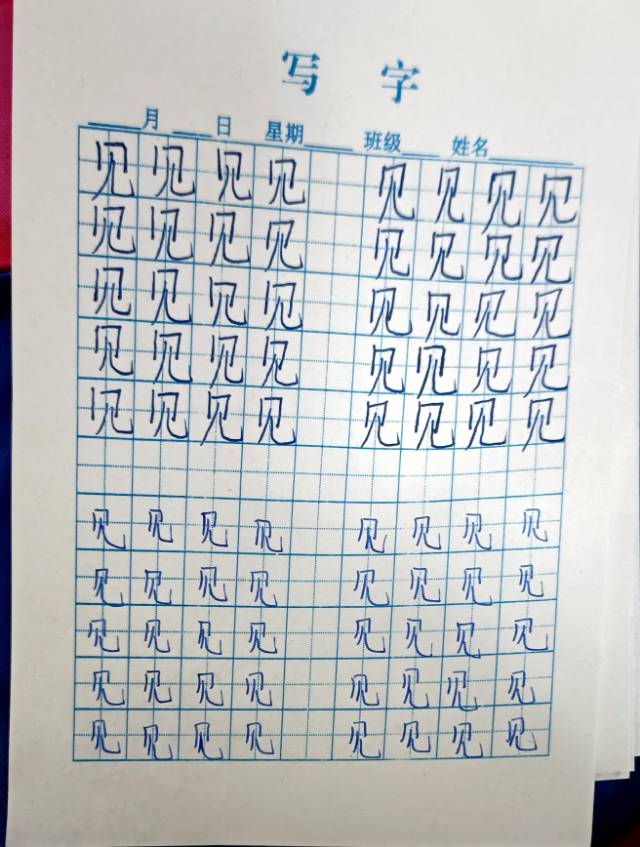 写 字
月 日 星期 班级 姓名
见 见 见 见 见 见 见 见
见 见 见 见 见 见 见 见
见 见 见 见 见 见 见 见
见 见 见 见 见 见 见 见
见 见 见 见 见 见 见 见
见 见 见 见 见 见 见 见
见 见 见 见 见 见 见 见
见 见 见 见 见 见 见 见
见 见 见 见 见 见 见 见
见 见 见 见 见 见 见 见